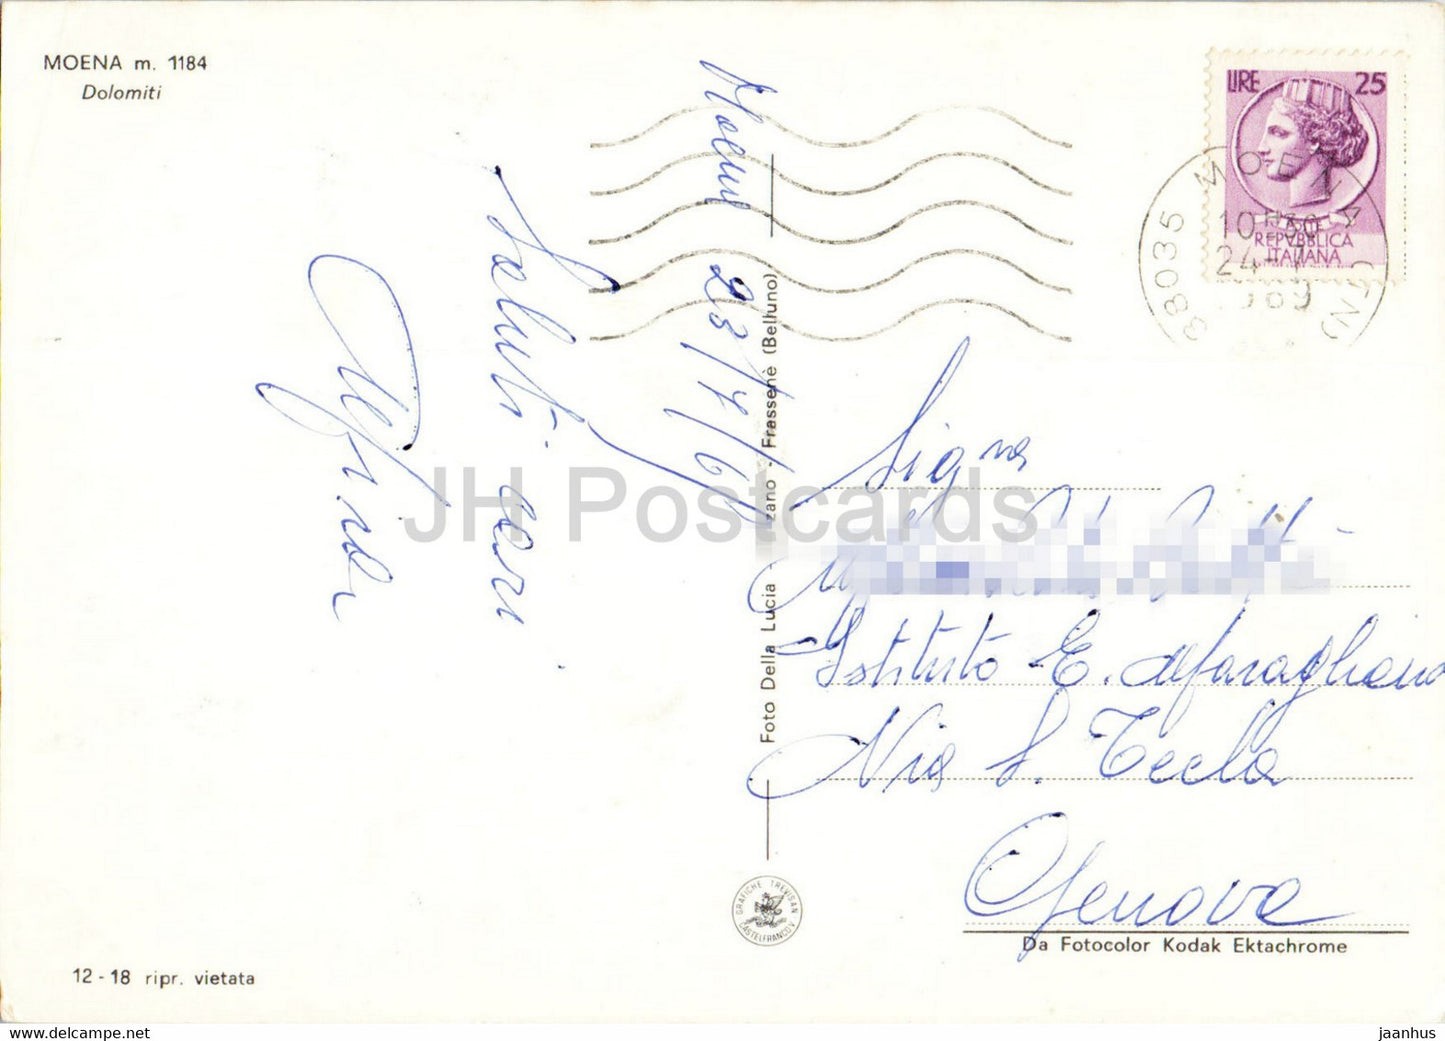 MOENA m. 1184
Dolomiti
LIRE 25
REPVBBLICA
ITALIANA
38035 MOENA (TN)
10
24
1969
Moena 23/7/69
Saluti cari
Foto Della Lucia - zano - Frassenè (Belluno)
JH Postcards
Sig.na
Istituto E. Maragliano
Via S. Tecla
Genova
GRAFICHE TREVISAN
CASTELFRANCO V.
Da Fotocolor Kodak Ektachrome
12 - 18 ripr. vietata
www.delcampe.net
jaanhus